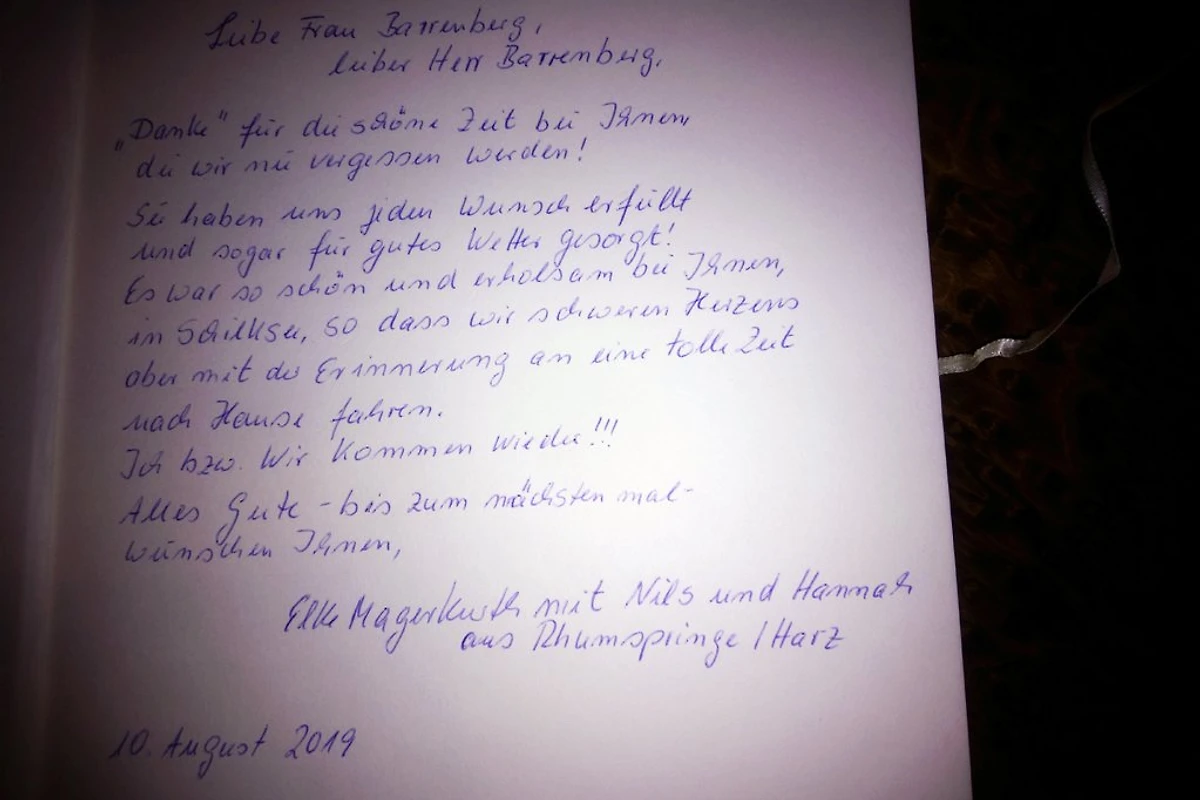 Liebe Frau Barrenberg,
lieber Herr Barrenberg,
„Danke" für die schöne Zeit bei Ihnen,
die wir nie vergessen werden!
Sie haben uns jeden Wunsch erfüllt
und sogar für gutes Wetter gesorgt!
Es war so schön und erholsam bei Ihnen,
in Schilksee, so dass wir schweren Herzens
aber mit der Erinnerung an eine tolle Zeit
nach Hause fahren.
Ich bzw. Wir kommen wieder!!!
Alles Gute - bis zum nächsten mal -
wünschen Ihnen,
Elke Magerkurth mit Nils und Hannah
aus Rhumspringe / Harz
10. August 2019